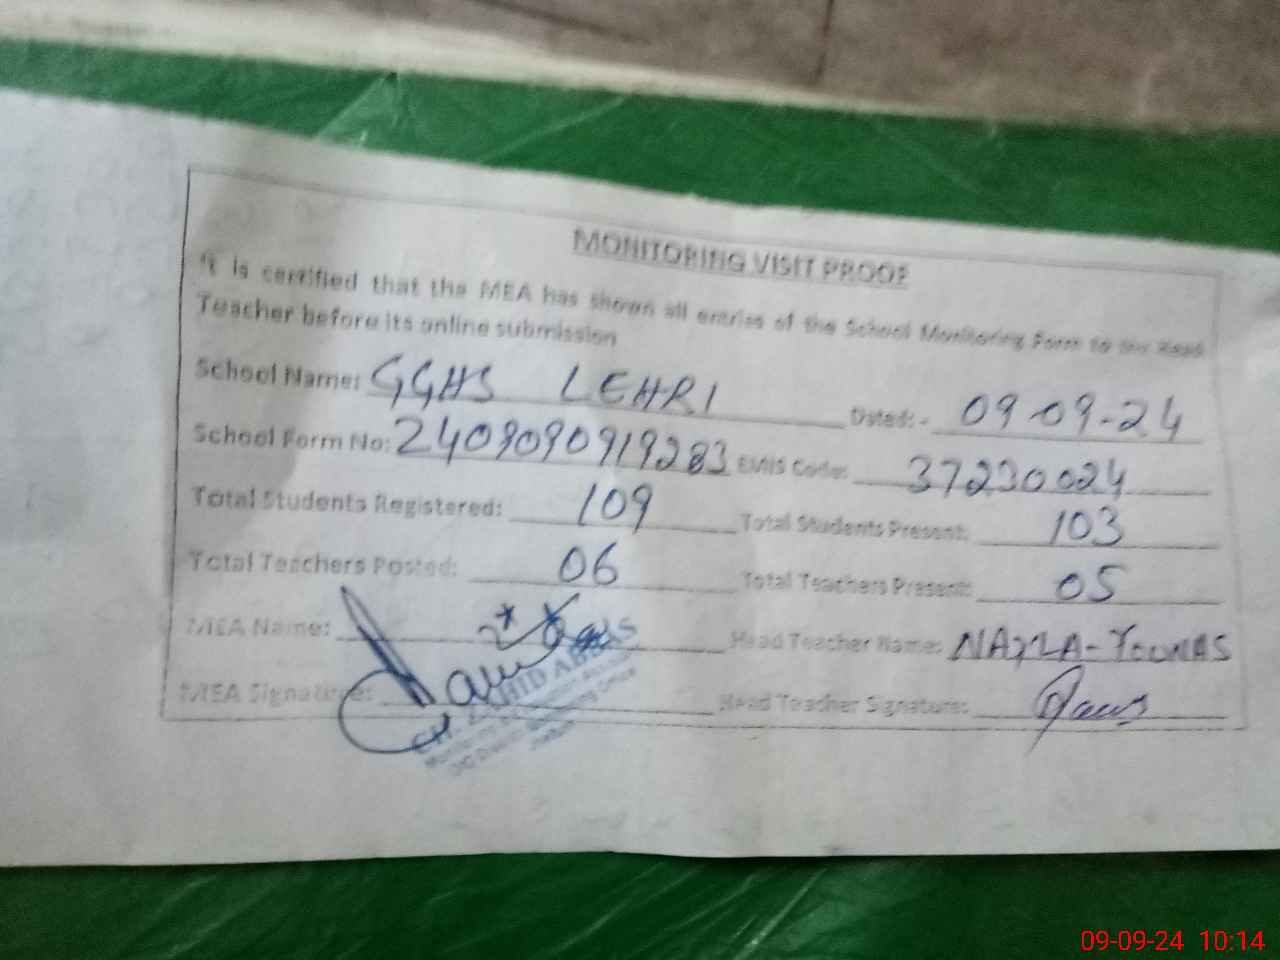 MONITORING VISIT PROOF
It is certified that the MEA has shown all entries of the School Monitoring Form to the Head
Teacher before its online submission
School Name: GGHS LEHRI Dated:- 09-09-24
School Form No: 2409090919283 EMIS Code: 37230024
Total Students Registered: 109 Total Students Present: 103
Total Teachers Posted: 06 Total Teachers Present: 05
MEA Name: Head Teacher Name: NAYLA-YOUNAS
MEA Signature: Head Teacher Signature:
CH. ZAHID ABBAS
09-09-24 10:14